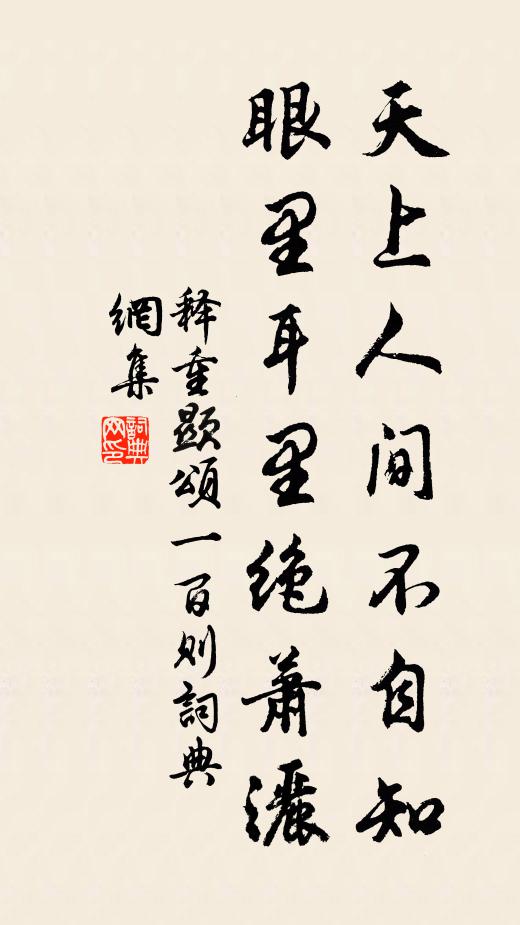 天上人间不自知
眼里耳里绝萧灑
释重顯頌一百则詞典
網集
詞典
网印